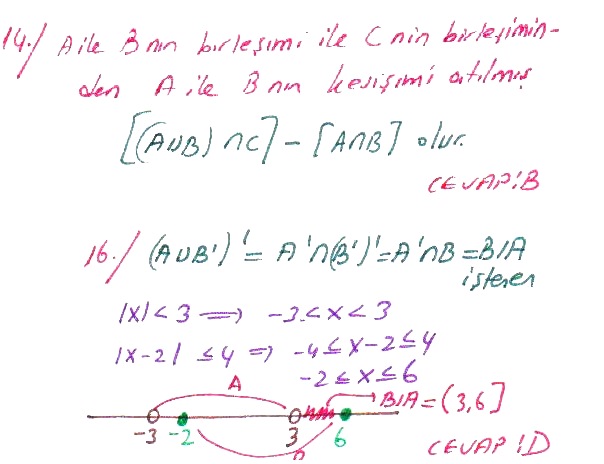 14./ A ile B nın birleşimi ile C nin birleşimin-
den A ile B nın kesişimi atılmış
[(A∪B) ∩C] - [A∩B] olur.
CEVAP:B
16./ (A∪B')' = A'∩(B')' = A'∩B = B\A
istenen
|x| < 3 ⟹ -3 < x < 3
|x-2| ≤ 4 ⇒ -4 ≤ x-2 ≤ 4
-2 ≤ x ≤ 6
A
B\A = (3,6]
-3 -2 3 6
B
CEVAP:D